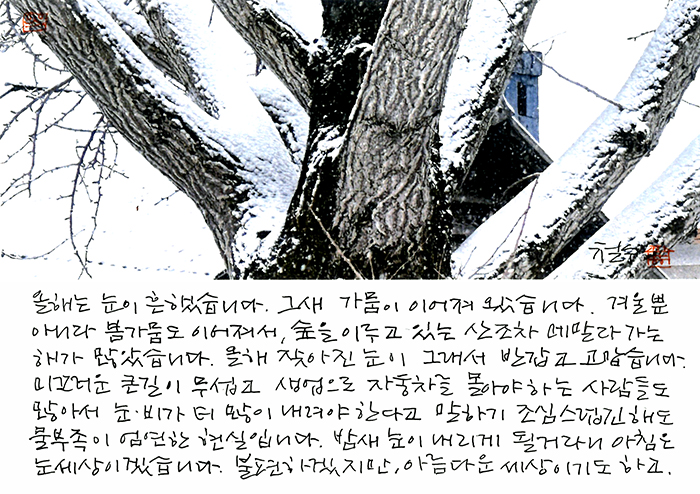 철수
올해는 눈이 흔했습니다. 그새 가뭄이 이어져 왔습니다. 겨울뿐
아니라 봄가뭄도 이어져서, 숲을 이루고 있는 산조차 메말라 가는
해가 많았습니다. 올해 잦아진 눈이 그래서 반갑고 고맙습니다.
미끄러운 큰길이 무섭고 생업으로 자동차를 몰아야 하는 사람들도
많아서 눈·비가 더 많이 내려야 한다고 말하기 조심스럽긴 해도
물부족이 엄연한 현실입니다. 밤새 눈이 내리게 될거라니 아침은
눈세상이겠습니다. 불편하겠지만, 아름다운 세상이기도 하고.